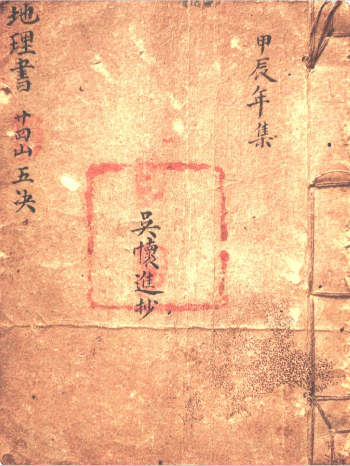 甲辰年集
吳懷進抄
地理書 廿四山五决